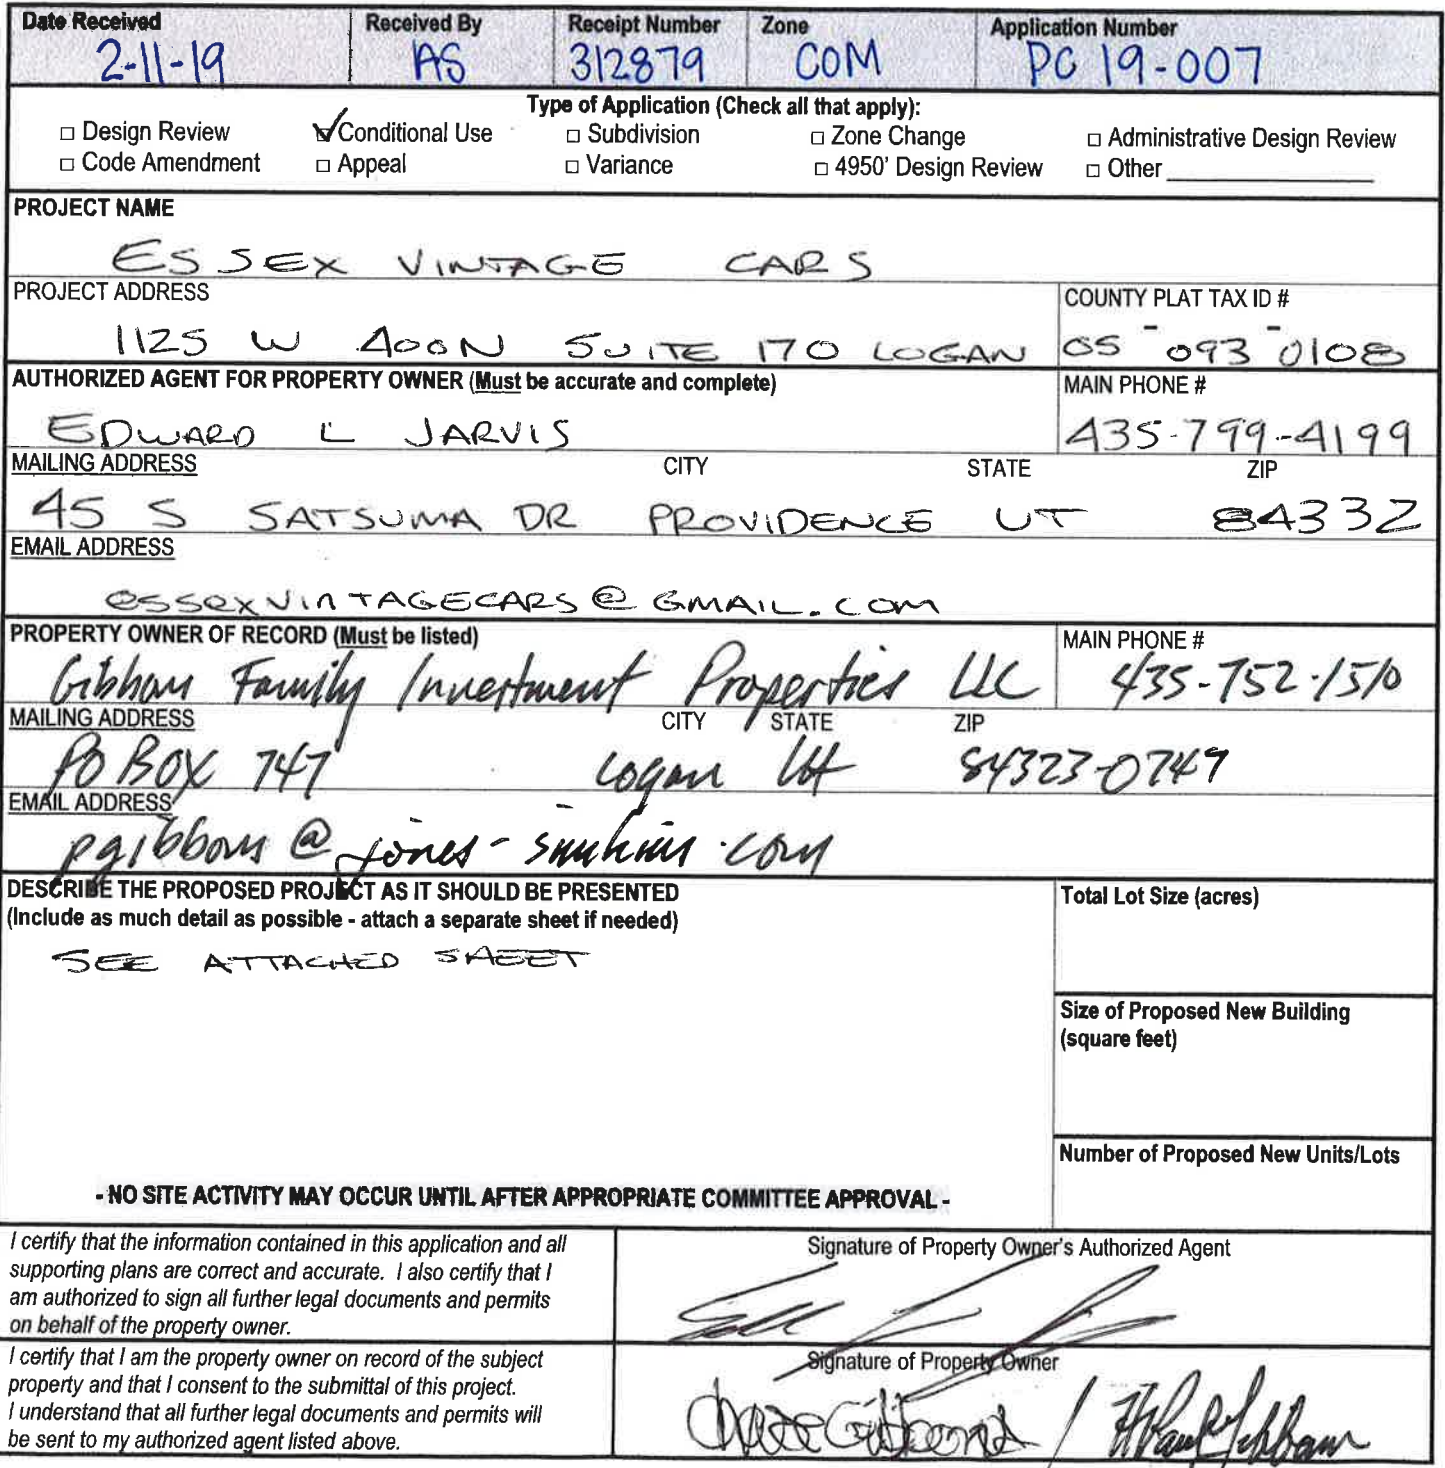 Date Received Received By Receipt Number Zone Application Number
2-11-19 AS 312879 COM PC 19-007
Type of Application (Check all that apply):
□ Design Review ☑ Conditional Use □ Subdivision □ Zone Change □ Administrative Design Review
□ Code Amendment □ Appeal □ Variance □ 4950' Design Review □ Other
PROJECT NAME
ESSEX VINTAGE CARS
PROJECT ADDRESS COUNTY PLAT TAX ID #
1125 W 400N SUITE 170 LOGAN 05-093-0108
AUTHORIZED AGENT FOR PROPERTY OWNER (Must be accurate and complete) MAIN PHONE #
EDWARD L JARVIS 435-799-4199
MAILING ADDRESS CITY STATE ZIP
45 S SATSUMA DR PROVIDENCE UT 84332
EMAIL ADDRESS
essexvinTAGECARS@GMAIL.COM
PROPERTY OWNER OF RECORD (Must be listed) MAIN PHONE #
Gibbons Family Investment Properties LLC 435-752-1510
MAILING ADDRESS CITY STATE ZIP
PO BOX 747 Logan Ut 84323-0747
EMAIL ADDRESS
pgibbons@jones-simkins.com
DESCRIBE THE PROPOSED PROJECT AS IT SHOULD BE PRESENTED Total Lot Size (acres)
(Include as much detail as possible - attach a separate sheet if needed)
SEE ATTACHED SHEET
Size of Proposed New Building
(square feet)
Number of Proposed New Units/Lots
- NO SITE ACTIVITY MAY OCCUR UNTIL AFTER APPROPRIATE COMMITTEE APPROVAL -
I certify that the information contained in this application and all
supporting plans are correct and accurate. I also certify that I
am authorized to sign all further legal documents and permits
on behalf of the property owner.
Signature of Property Owner's Authorized Agent
I certify that I am the property owner on record of the subject
property and that I consent to the submittal of this project.
I understand that all further legal documents and permits will
be sent to my authorized agent listed above.
Signature of Property Owner